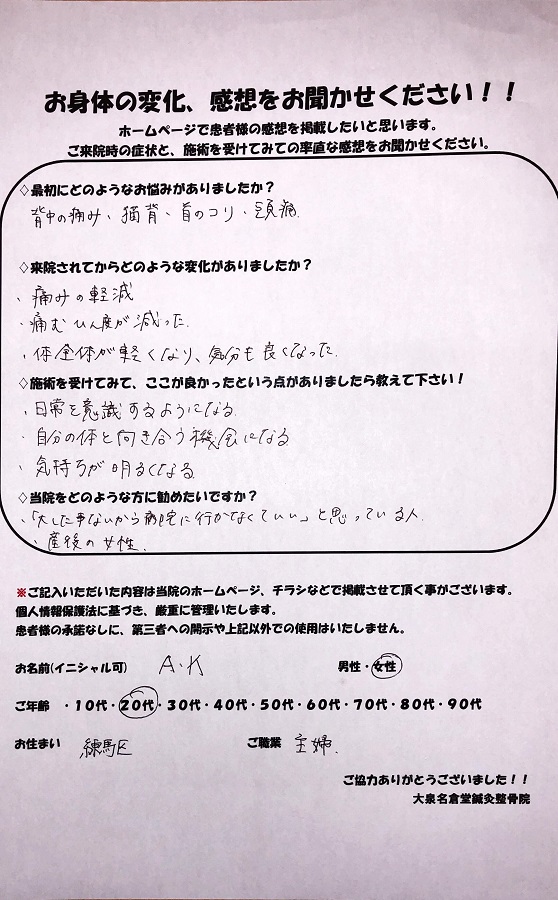 お身体の変化、感想をお聞かせください！！
ホームページで患者様の感想を掲載したいと思います。
ご来院時の症状と、施術を受けてみての率直な感想をお聞かせください。
◇最初にどのようなお悩みがありましたか？
背中の痛み、猫背、首のコリ、頭痛．
◇来院されてからどのような変化がありましたか？
・痛みの軽減
・痛むひん度が減った．
・体全体が軽くなり、気分も良くなった．
◇施術を受けてみて、ここが良かったという点がありましたら教えて下さい！
・日常を意識するようになる．
・自分の体と向き合う機会になる
・気持ちが明るくなる．
◇当院をどのような方に勧めたいですか？
・「大した事ないから病院に行かなくていい」と思っている人．
・産後の女性．
※ご記入いただいた内容は当院のホームページ、チラシなどで掲載させて頂く事がございます。
個人情報保護法に基づき、厳重に管理いたします。
患者様の承諾なしに、第三者への開示や上記以外での使用はいたしません。
お名前(イニシャル可) A・K 男性・女性
ご年齢 ・10代・20代・30代・40代・50代・60代・70代・80代・90代
お住まい 練馬区 ご職業 主婦．
ご協力ありがとうございました！！
大泉名倉堂鍼灸整骨院